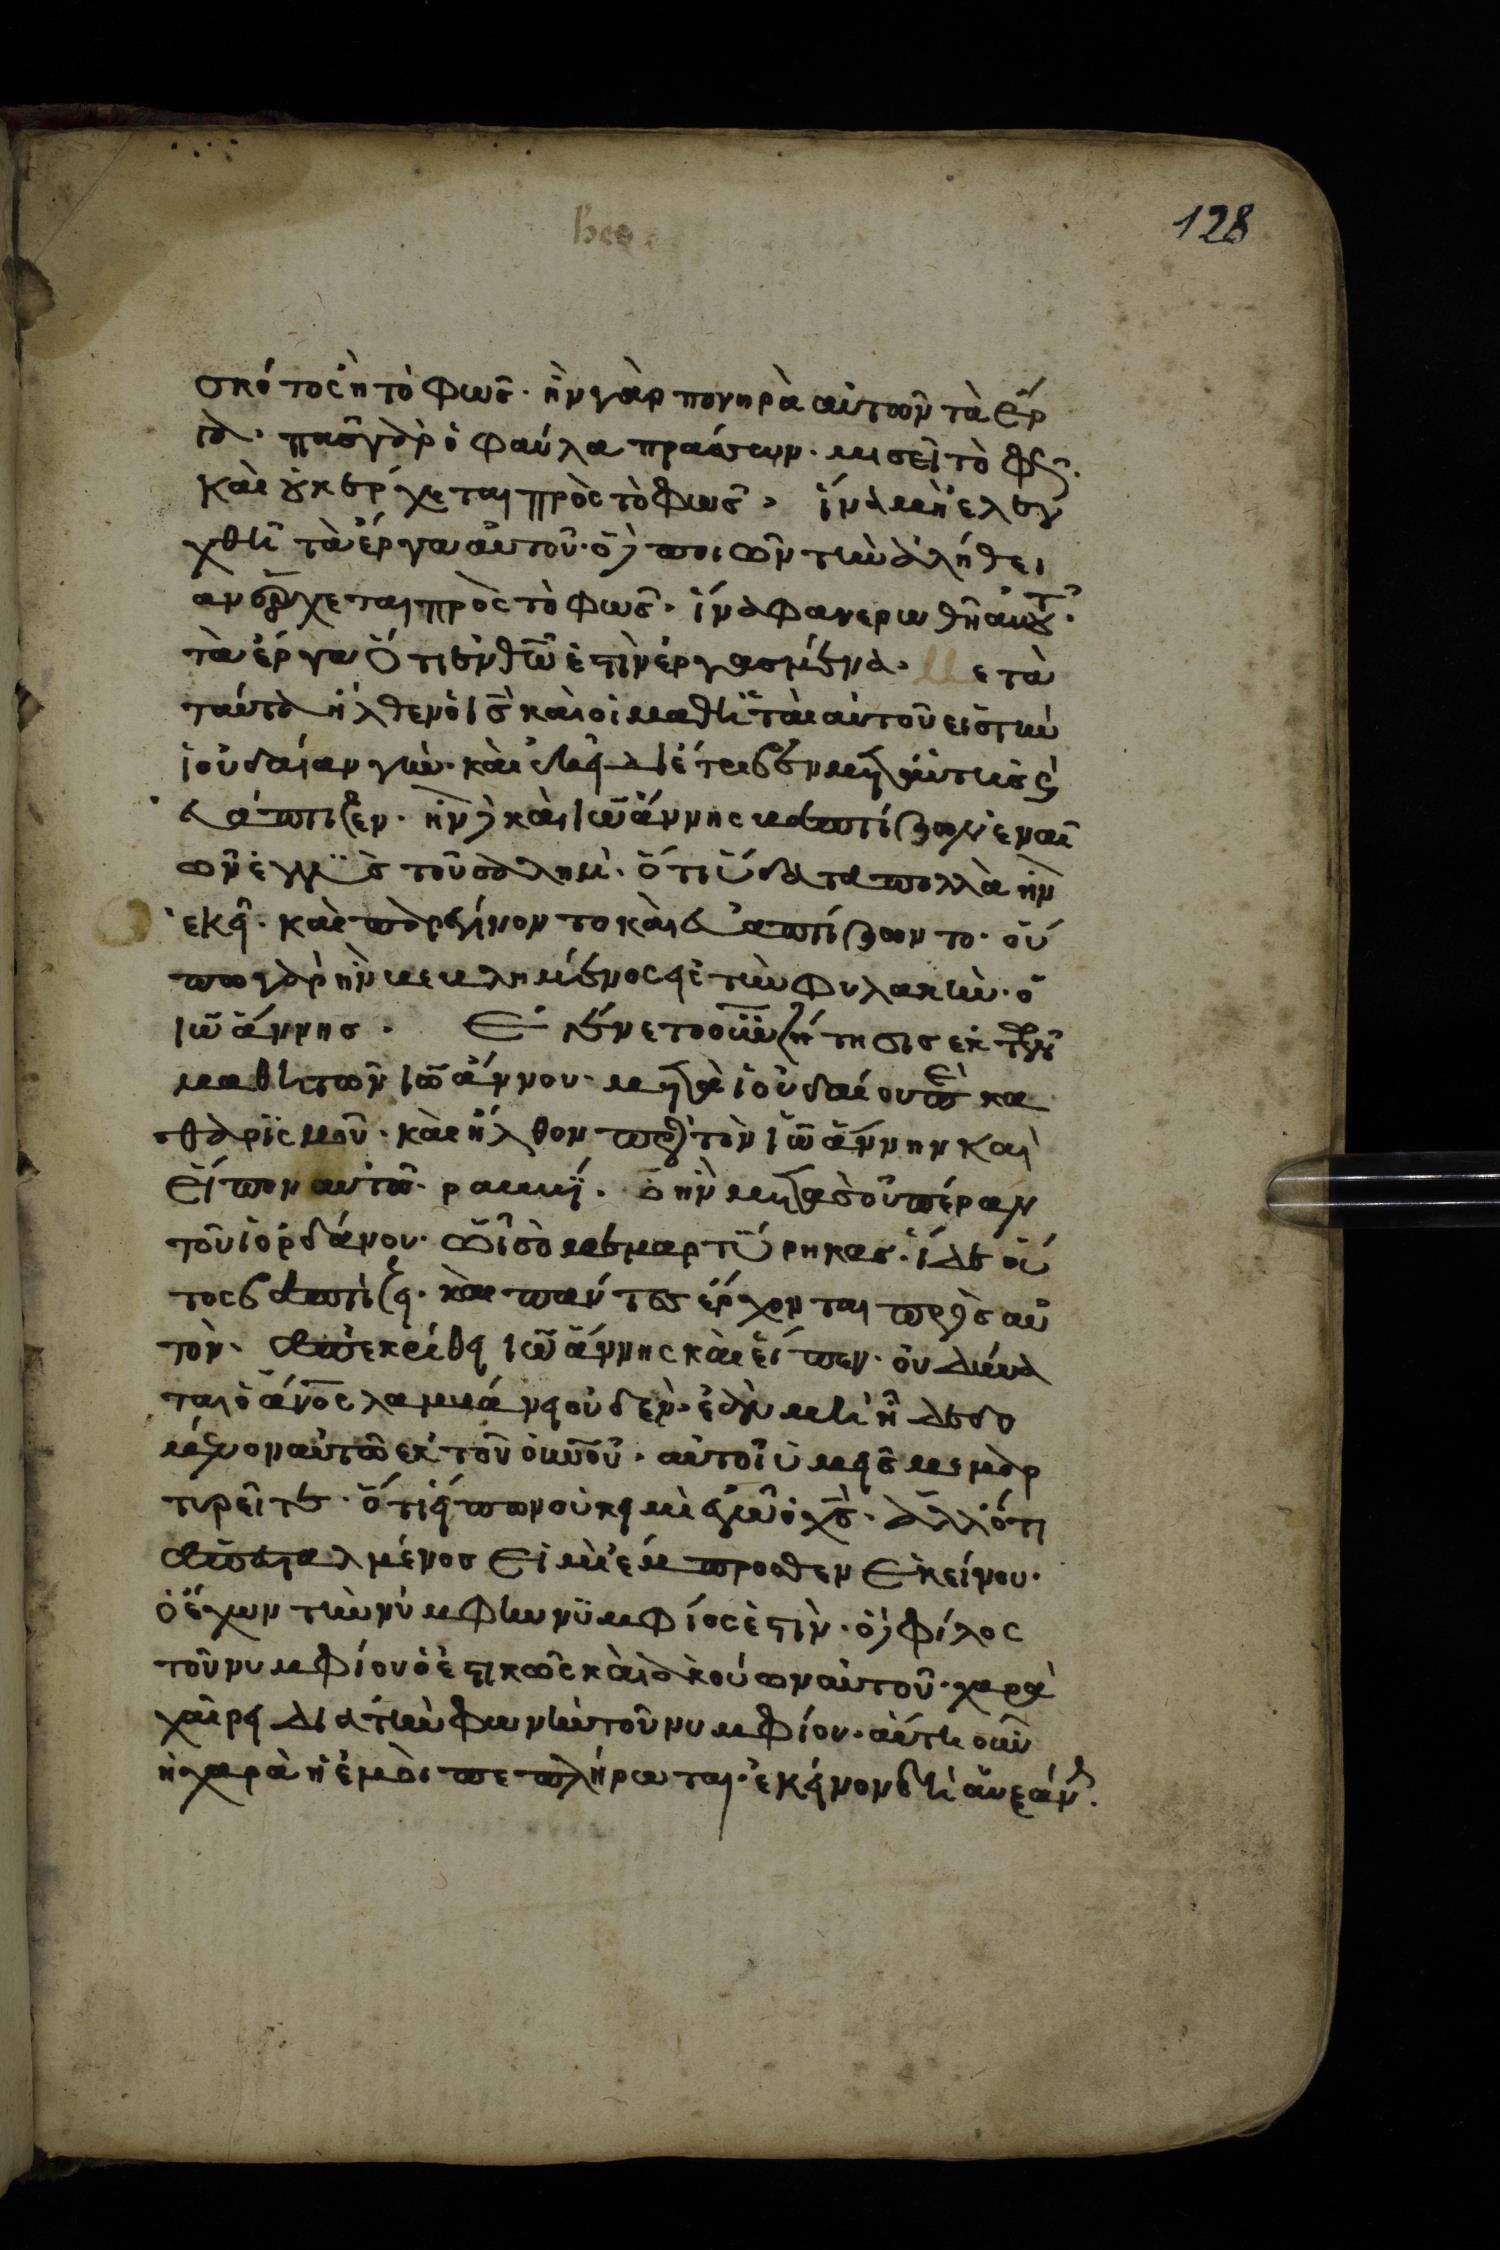 128
σκότος ἢ τὸ φῶς· ἦν γὰρ πονηρὰ αὐτῶν τὰ ἔρ
γα· πᾶς γὰρ ὁ φαύλα πράσσων· μισεῖ τὸ φῶς·
καὶ οὐκ ἔρχεται πρὸς τὸ φῶς· ἵνα μὴ ελεγ
χθῆ τὰ ἔργα αὐτοῦ· ὁ δὲ ποιῶν τὴν ἀλήθει
αν ἔρχεται πρὸς τὸ φῶς· ἵνα φανερωθῆ αὐτοῦ·
τὰ ἔργα ὅτι ἐν θῶ ἐστὶν ἐργασμένα· Μετὰ
ταύτα ἦλθεν ὁ ις καὶ οἱ μαθηταὶ αὐτοῦ εἰς τὴν
ἰουδαίαν γὴν· καὶ ἐκεῖ διέτριβεν μετ αὐτῶν καὶ
ἐβάπτιζεν· ἦν δὲ καὶ ἰωάννης βαπτίζων ἐν αἰ
νῶν ἐγγὺς τοῦ σαλημ· ὅτι ὕδατα πολλὰ ἦν
ἐκεῖ· καὶ παρεγίνοντο καὶ ἐβαπτίζοντο· οὔ
πω γὰρ ἦν βεβλημένος εἰς τὴν φυλακὴν· ὁ
ἰωάννης· Ἐγένετο οὖν ζήτησις εκ τῶν
μαθητῶν ἰωάννου· μετὰ ἰουδαίου περὶ κα
θαρισμοῦ· καὶ ἦλθον πρὸς τὸν ἰωάννην καὶ
εἶπον αὐτῶ· ραββί· ὃς ἦν μετὰ σοῦ πέραν
τοῦ ἰορδάνου· ὧ σὺ μεμαρτύρηκας· ἴδε οὗ
τος βαπτίζει· καὶ πάντες ἔρχονται πρὸς αὐ
τὸν· ἀπεκρίθη ἰωάννης καὶ εἶπεν· οὐ δύνα
ται ὁ ἄνος λαμβάνειν οὐδὲν· ἐὰν μὴ ἦ δεδο
μένον αὐτῶ ἐκ τοῦ οὐνοῦ· αὐτοὶ ὑμεῖς μεμαρ
τυρεῖτε· ὅτι εἶπον οὐκ εἰμὶ ἐγὼ ὁ χς· ἀλλ ὅτι
ἀπεσταλμένος εἰμὶ ἔμπροσθεν ἐκείνου·
ὁ ἔχων τὴν νύμφην νυμφίος ἐστὶν· ὁ δὲ φίλος
τοῦ νυμφίου ὁ ἑστηκὼς καὶ ἀκούων αὐτοῦ· χαρᾶ
χαίρει διὰ τὴν φωνὴν τοῦ νυμφίου· αὕτη οὖν
ἡ χαρὰ ἡ ἐμὴ πεπλήρωται· ἐκεῖνον δεῖ αὐξάν·